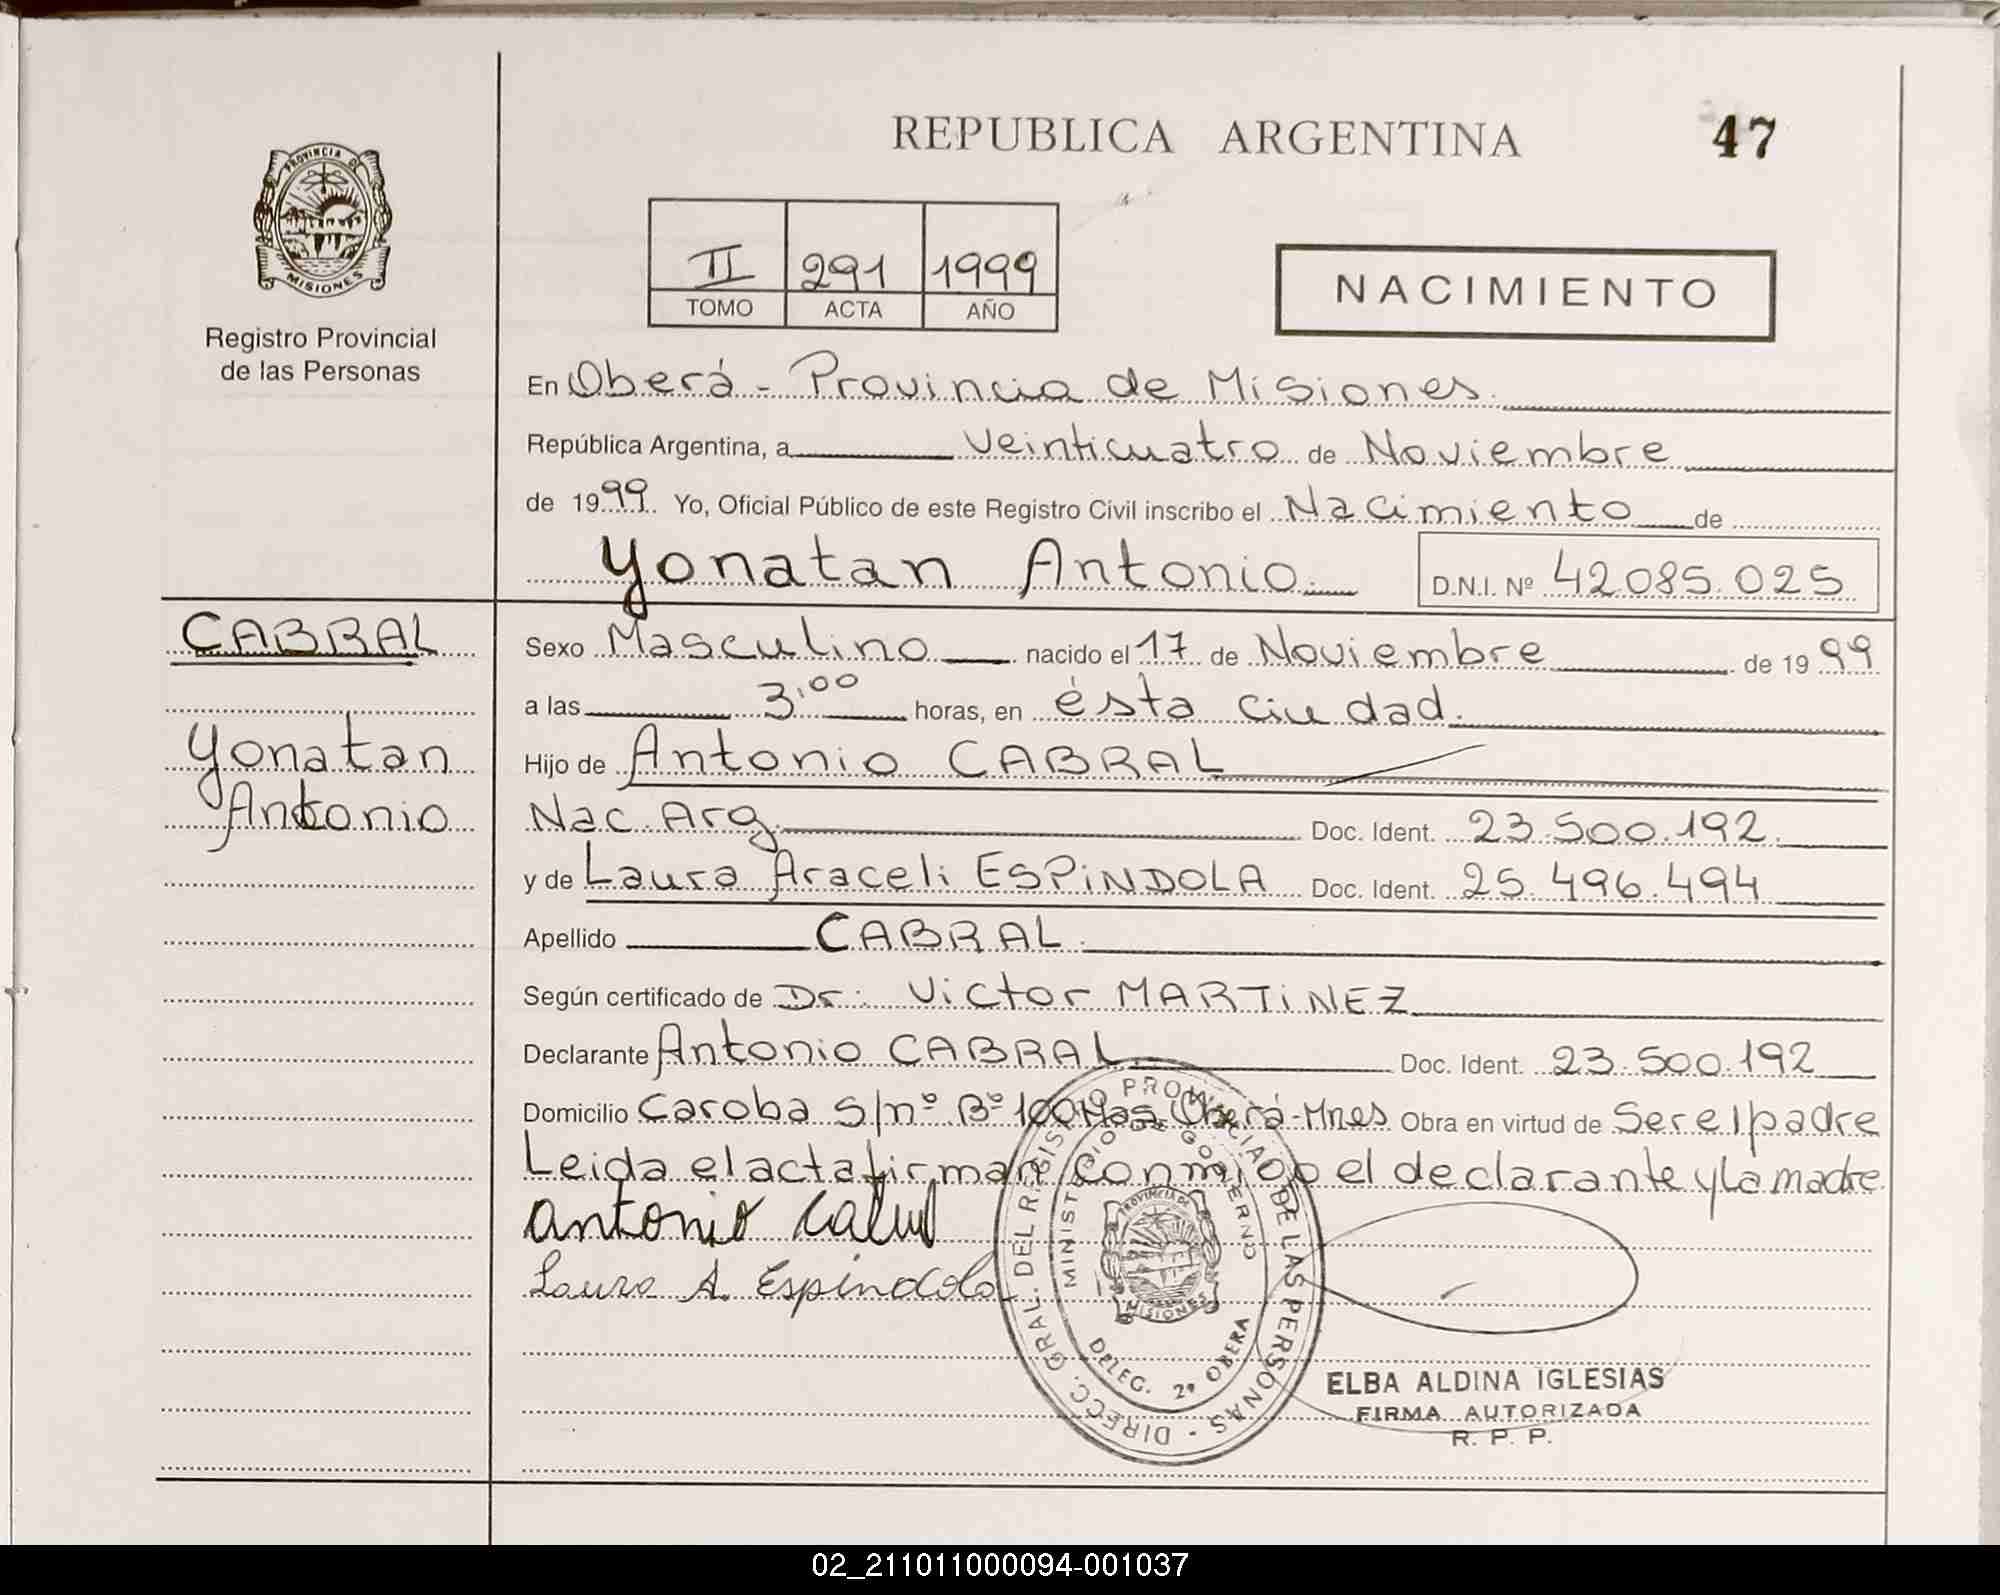 REPUBLICA ARGENTINA
47
PROVINCIA DE
MISIONES
Registro Provincial
de las Personas
II 291 1999
TOMO ACTA AÑO
NACIMIENTO
En Oberá - Provincia de Misiones.
República Argentina, a veinticuatro de Noviembre
de 1999. Yo, Oficial Público de este Registro Civil inscribo el Nacimiento de
Yonatan Antonio D.N.I. Nº 42.085.025
CABRAL
Yonatan
Antonio
Sexo Masculino nacido el 17 de Noviembre de 1999
a las 3,00 horas, en ésta ciudad.
Hijo de Antonio CABRAL
Nac. Arg. Doc. Ident. 23.500.192.
y de Laura Araceli ESPINDOLA Doc. Ident. 25.496.494
Apellido CABRAL.
Según certificado de Dr: Victor MARTINEZ
Declarante Antonio CABRAL. Doc. Ident. 23.500.192
Domicilio Caroba s/nº Bº 100 Has. Oberá-Mnes Obra en virtud de Ser el padre
Leida el acta firman conmigo el declarante y la madre
antonio Cabral
Laura A. Espindola
DIRECC. GRAL. DEL REGISTRO PROVINCIAL DE LAS PERSONAS -
MINISTERIO DE GOBIERNO
PROVINCIA DE
MISIONES
DELEG. 2ª OBERA
ELBA ALDINA IGLESIAS
FIRMA AUTORIZADA
R. P. P.
02_211011000094-001037